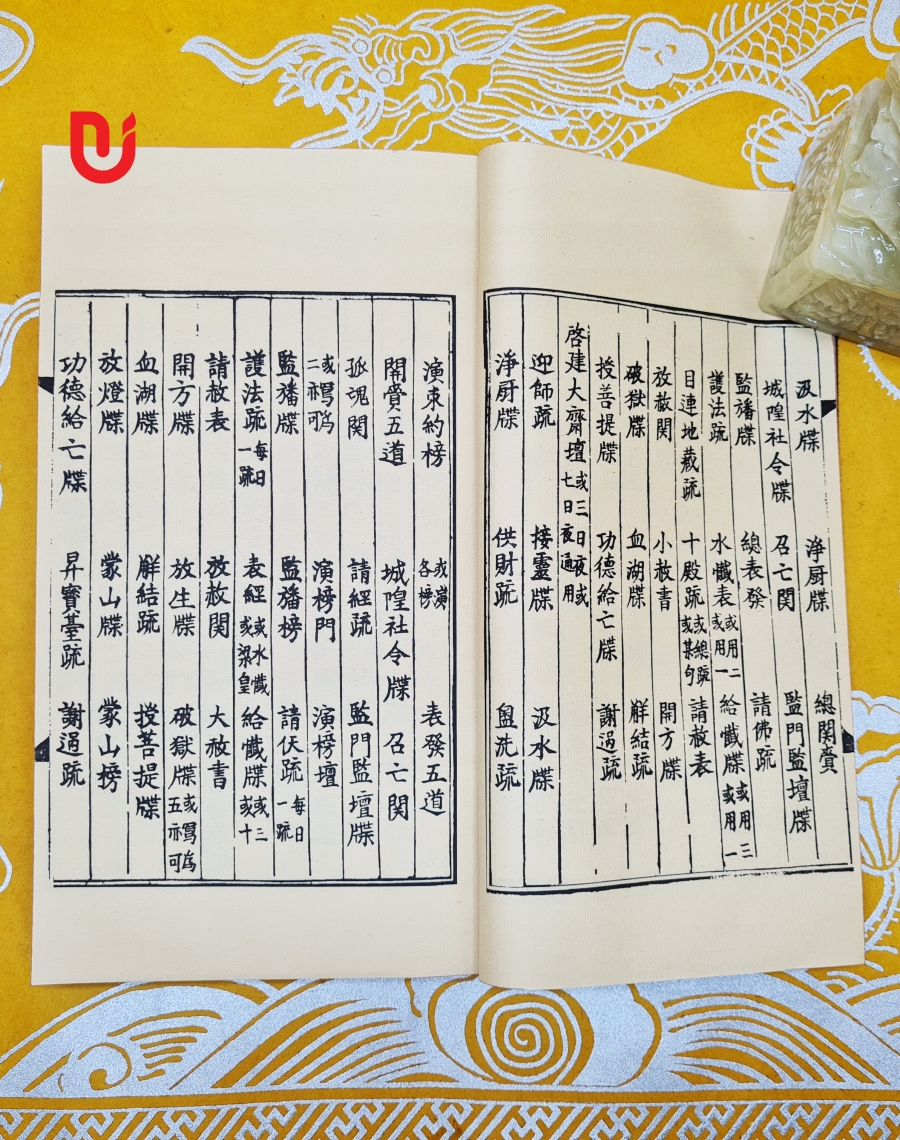 汲水牒 淨厨牒 總関賫
城隍社令牒 召亡関 監門監壇牒
監旛牒 總表發 請佛疏
護法疏 水懺表或用二或用一 給懺牒或用三或用一
目連地蔵疏 十殿疏或總疏或某句 請赦表
放赦関 小赦書 開方牒
破獄牒 血湖牒 觧結疏
授菩提牒 功德給亡牒 謝過疏
啓建大齋壇或三日夜或七日夜通用
迎師疏 接靈牒 汲水牒
淨厨牒 供財疏 盥洗疏
演朿約榜 或演各榜 表發五道
関賫五道 城隍社令牒 召亡関
孤魂関 請經疏 監門監壇牒
演榜門 演榜壇
監旛牒 監旛榜 請伏疏每日一疏
護法疏每日一疏 表經或水懺或梁皇 給懺牒或三或十
請赦表 放赦関 大赦書
開方牒 放生牒 破獄牒
血湖牒 觧結疏 授菩提牒
放燈牒 蒙山牒 蒙山榜
功德給亡牒 昇寳臺疏 謝過疏